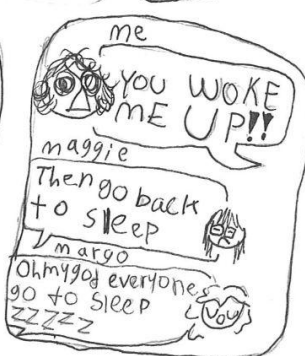 me
YOU WOKE
ME UP!!
maggie
Then go back
to sleep
margo
Ohmygod everyone
go to sleep
zzzzz